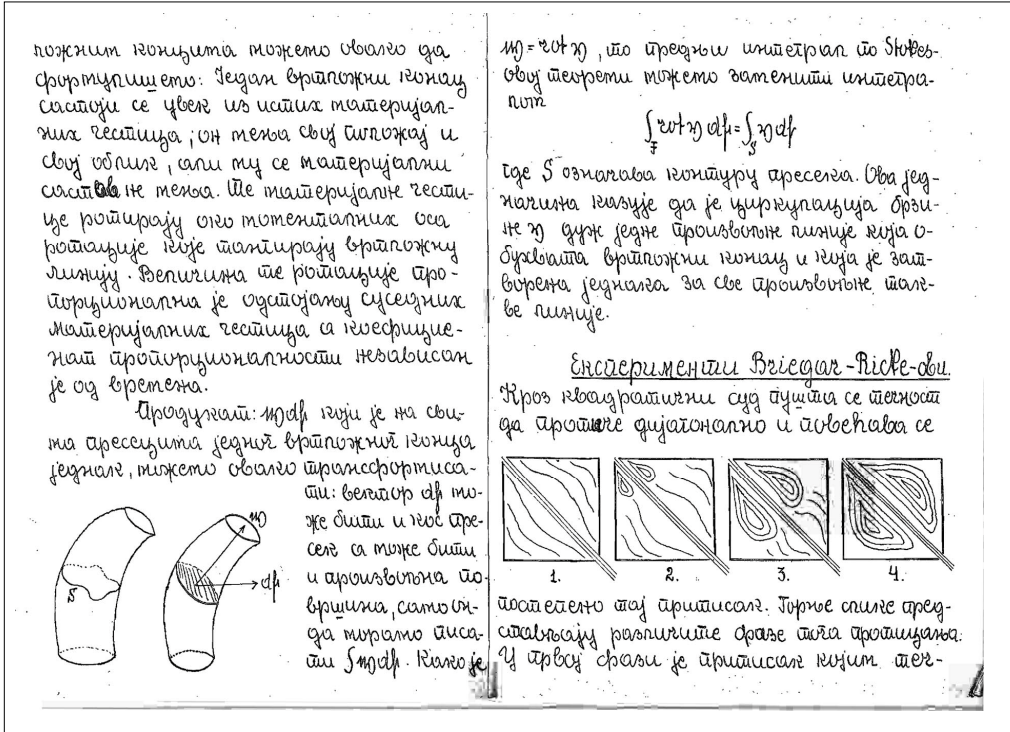 ложним концима можемо овако да
формулишемо: Један вртложни конац
састоји се увек из истих материјал-
них честица; он мења свој положај и
свој облик, али му се материјални
састав не мења. Те материјалне чести-
це ротирају око моменталних оса
ротације које тангирају вртложну
линију. Величина те ротације про-
порционална је одстојању суседних
материјалних честица са коефицие-
нат пропорционалности независан
је од времена.
Продукат: 𝔴d𝔣 који је на сви-
ма пресецима једног вртложног конца
једнак, можемо овако трансформиса-
ти: вектор d𝔣 мо-
же бити и кос пре-
сек са може бити
и произвољна по-
вршина, само он-
да морамо писа-
ти ∫𝔴d𝔣. Како је
S
𝔴
d𝔣
𝔴 = rot 𝔳, то предњи интеграл по Stokes-
овој теореми можемо заменити интегра-
лом
∫_F rot 𝔳 d𝔣 = ∫_S 𝔳 d𝔣
где S означава контуру пресека. Ова јед-
начина казује да је циркулација брзи-
не 𝔳 дуж једне произвољне линије која о-
бухвата вртложни конац и која је зат-
ворена једнака за све произвољне так-
ве линије.
Експерименти Briegar-Ricke-ови.
Кроз квадратични суд пушта се течност
да протиче дијагонално и повећава се
1. 2. 3. 4.
постепено тај притисак. Горње слике пред-
стављају различите фазе тога протицања:
У првој фази је притисак којим теч-